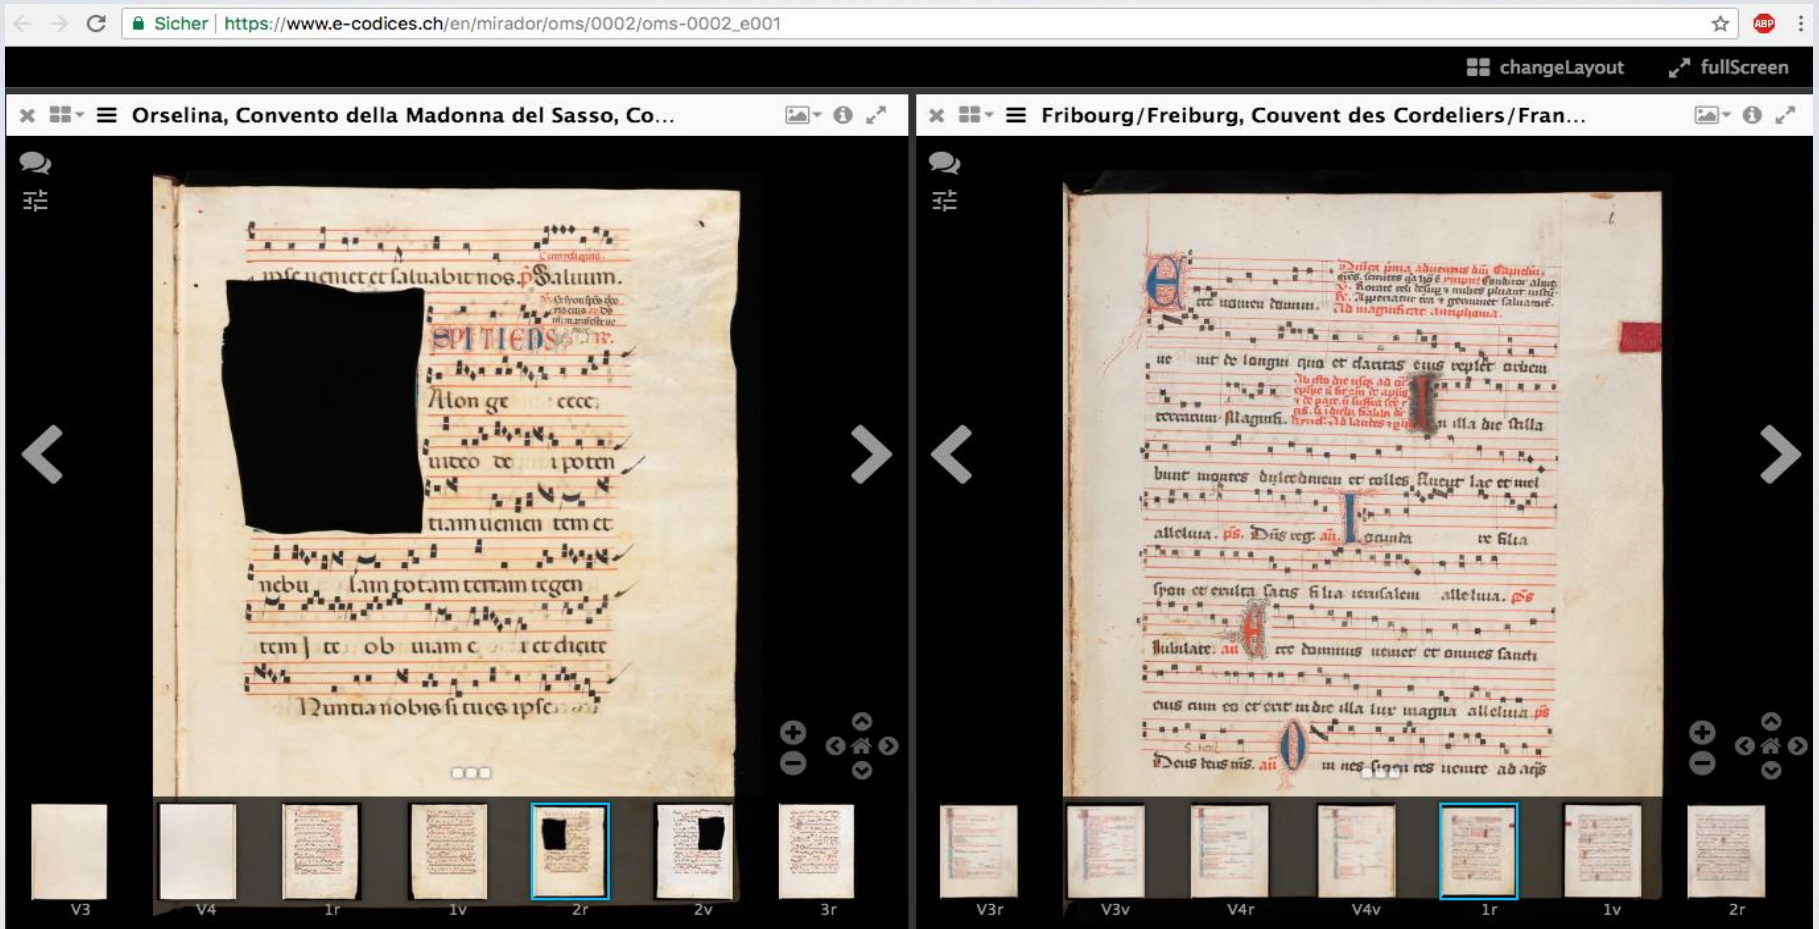 Sicher | https://www.e-codices.ch/en/mirador/oms/0002/oms-0002_e001
ABP
changeLayout
fullScreen
Orselina, Convento della Madonna del Sasso, Co...
ipse ueniet et saluabit nos. Saluum.
SPITIENS
A lon ge ecce
uideo de i poten
tiam uenien tem et
nebu lam totam terram tegen
tem I te ob uiam e i et dicite
Nuntia nobis si tu es ipse
V3
V4
1r
1v
2r
2v
3r
Fribourg/Freiburg, Couvent des Cordeliers/Fran...
cce nomen domini.
Ad magnificat antiphona.
ue nit de longin quo et claritas eius replet orbem
terrarum. Magnifi.
I n illa die stilla
bunt montes dulcedinem et colles fluent lac et mel
alleluia. ps. Dns reg. an. I ocunda re filia
syon et exulta satis filia ierusalem alleluia. ps
Iubilate. an E cce dominus ueniet et omnes sancti
eius cum eo et erit in die illa lux magna alleluia. ps
Deus deus ms. an O m nes sicien tes uenite ad aqs
V3r
V3v
V4r
V4v
1r
1v
2r